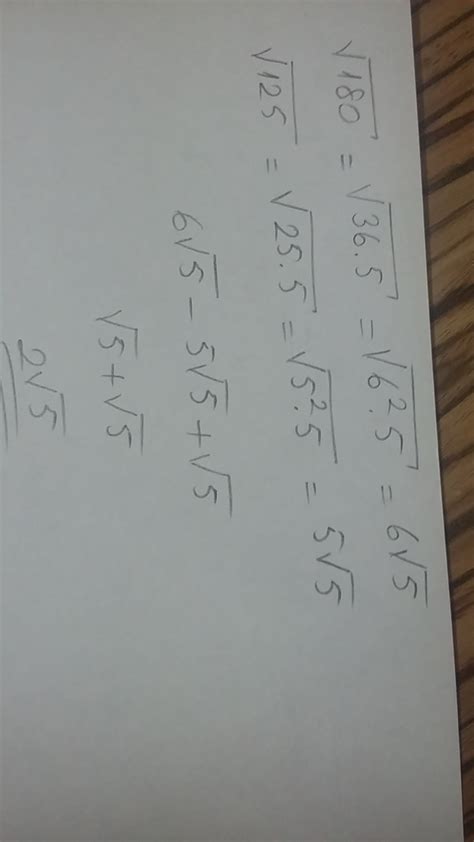 √180 = √36.5 = √6².5 = 6√5
√125 = √25.5 = √5².5 = 5√5
6√5 - 5√5 + √5
√5 + √5
2√5